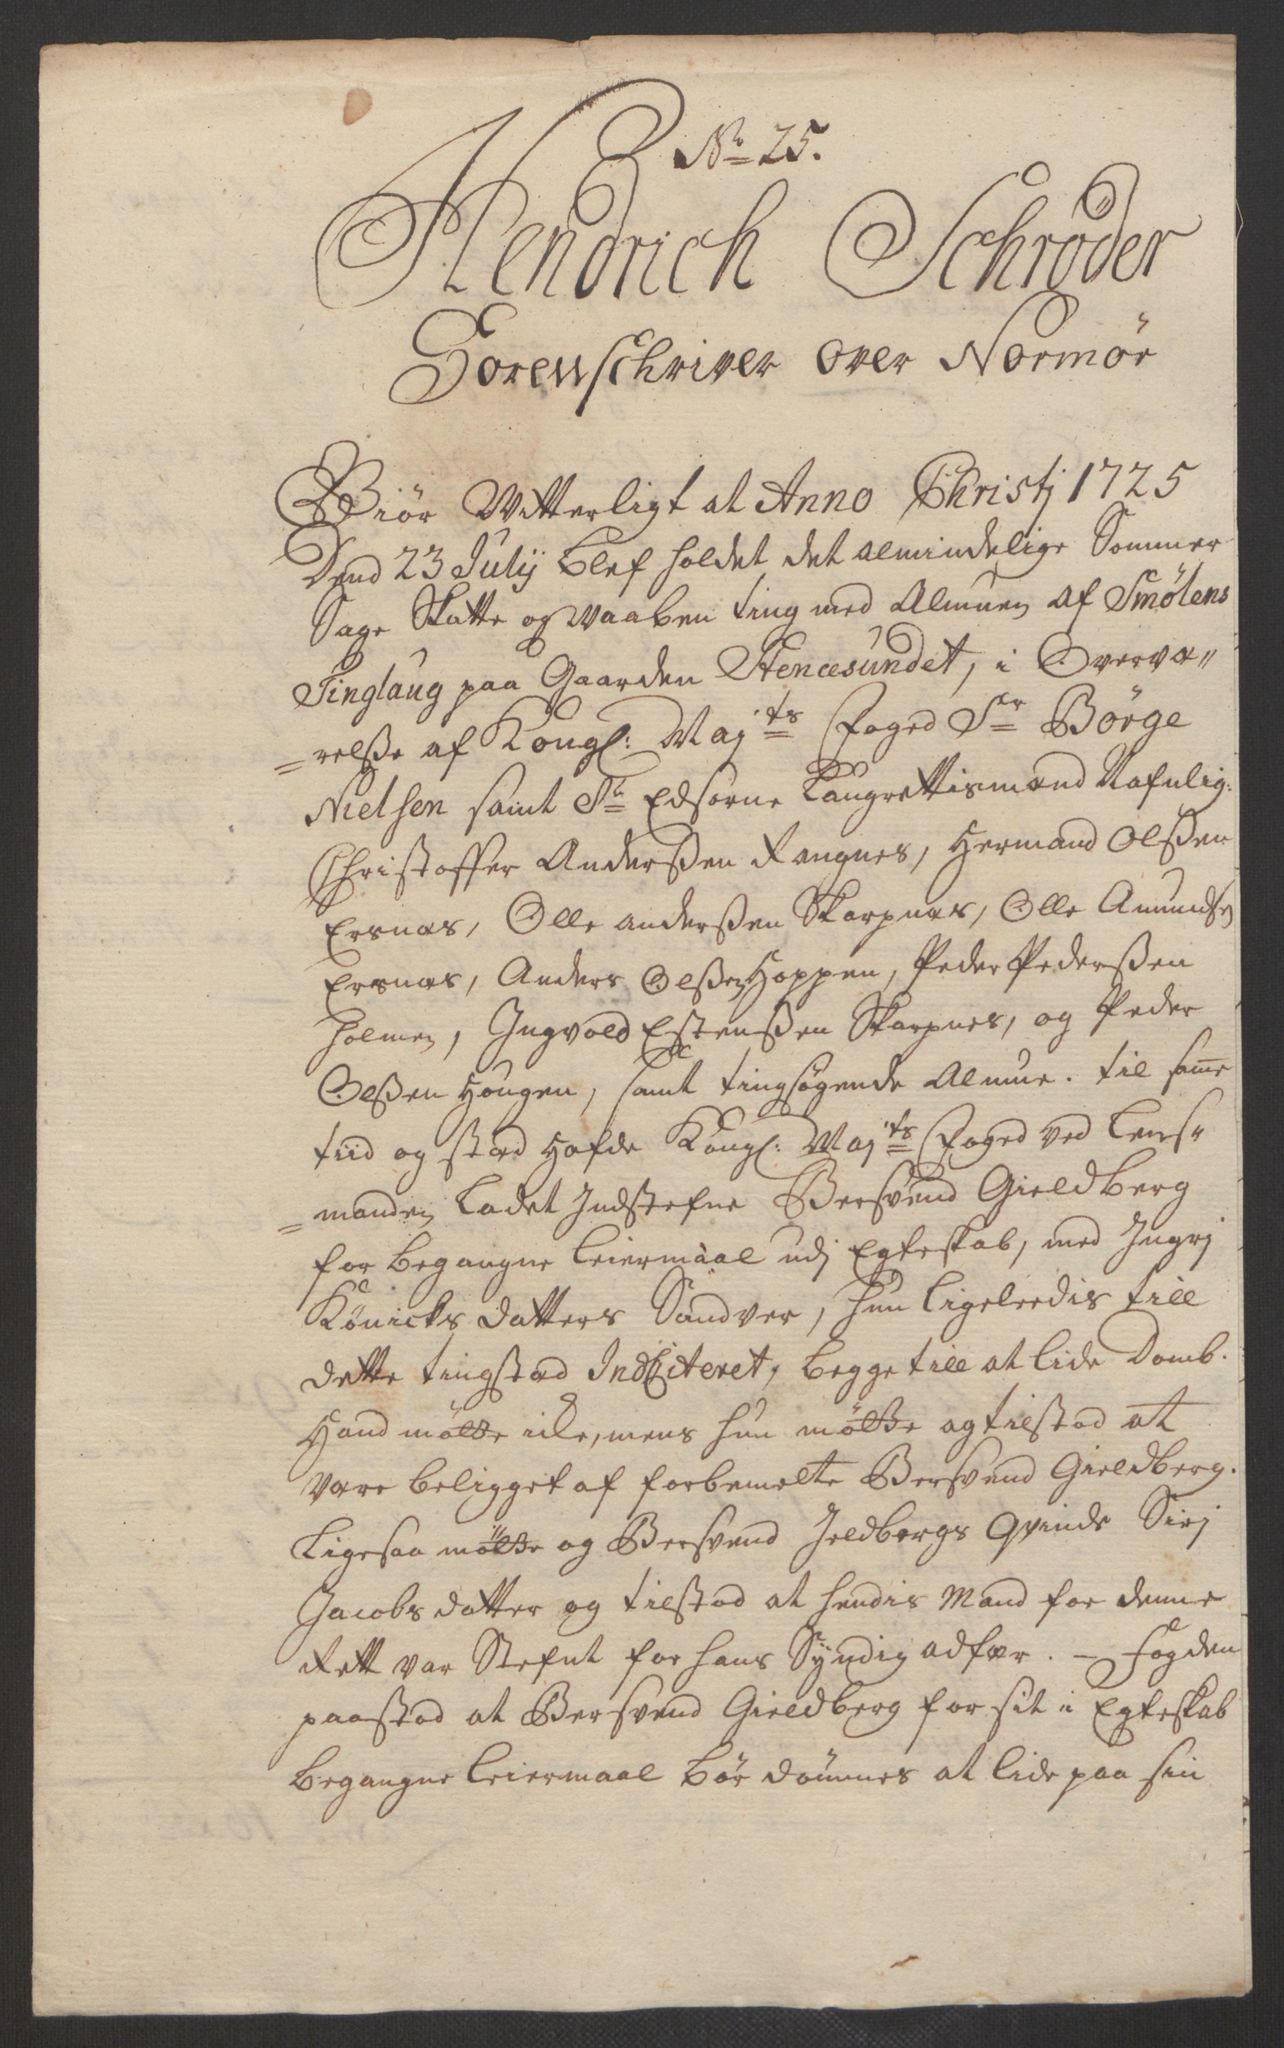 No 25.
Hendrich Schrøder
Sorenschriver over Normör
Giör Witterligt at Anno Christj 1725
Dend 23 Julij blef holdet det almindelige Sommer
Sage Skatte og Waaben ting med Almuen af Smølens
Tinglaug paa Gaarden Stenæsundet, i Overvæ„
=relsse af Kongl: Majts Foged Sr Börge
Nielsen samt Edsorne Laugrettismænd Nafnlig:
Christoffer Anderssen Rangnes, Hermand Olssen
Ersnæs, Olle Anderssen Skarpnæs, Olle Amunds:
Ersnæs, Anders Olssen Hoppen, Peder Pederssen
Holmen, Ingvold Estenssen Skarpnes, og Peder
Olssen Hougen, samt tingsøgende Almue. til samme
tiid og stæd Hafde Kongl: Majts Foged ved Lens„
=manden Ladet Indstefne Bersvend Gieldberg
for begangne Leiermaal udj Egteskab, med Ingrj
Kønicks datters Sandver, hun ligeleedis till
dette tingstæd Indsiteret, begge till at lide Domb.
Hand mötte icke, mens hun mötte og tilstod at
være beligget af forbemelte Bersvend Gieldberg.
Ligesaa mötte og Bersvend Jeldbergs Qvinde Sirj
Jacobs datter og tilstod at hendis Mand for denne
Rett var Stefnt for hans Syndig adfær. – Fogden
paastod at Bersvend Gieldberg for sit i Egteskab
begangne Leiermaal bör dömmes at lide paa sin